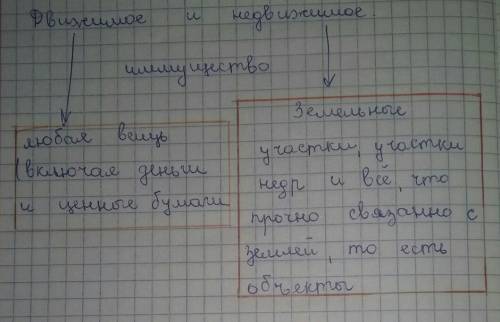 Движимое и недвижимое.
иммущество
любая вещь
(включая деньги
и ценные бумаги
Земельные
участки, участки
недр и всё, что
прочно связанно с
землей, то есть
объекты